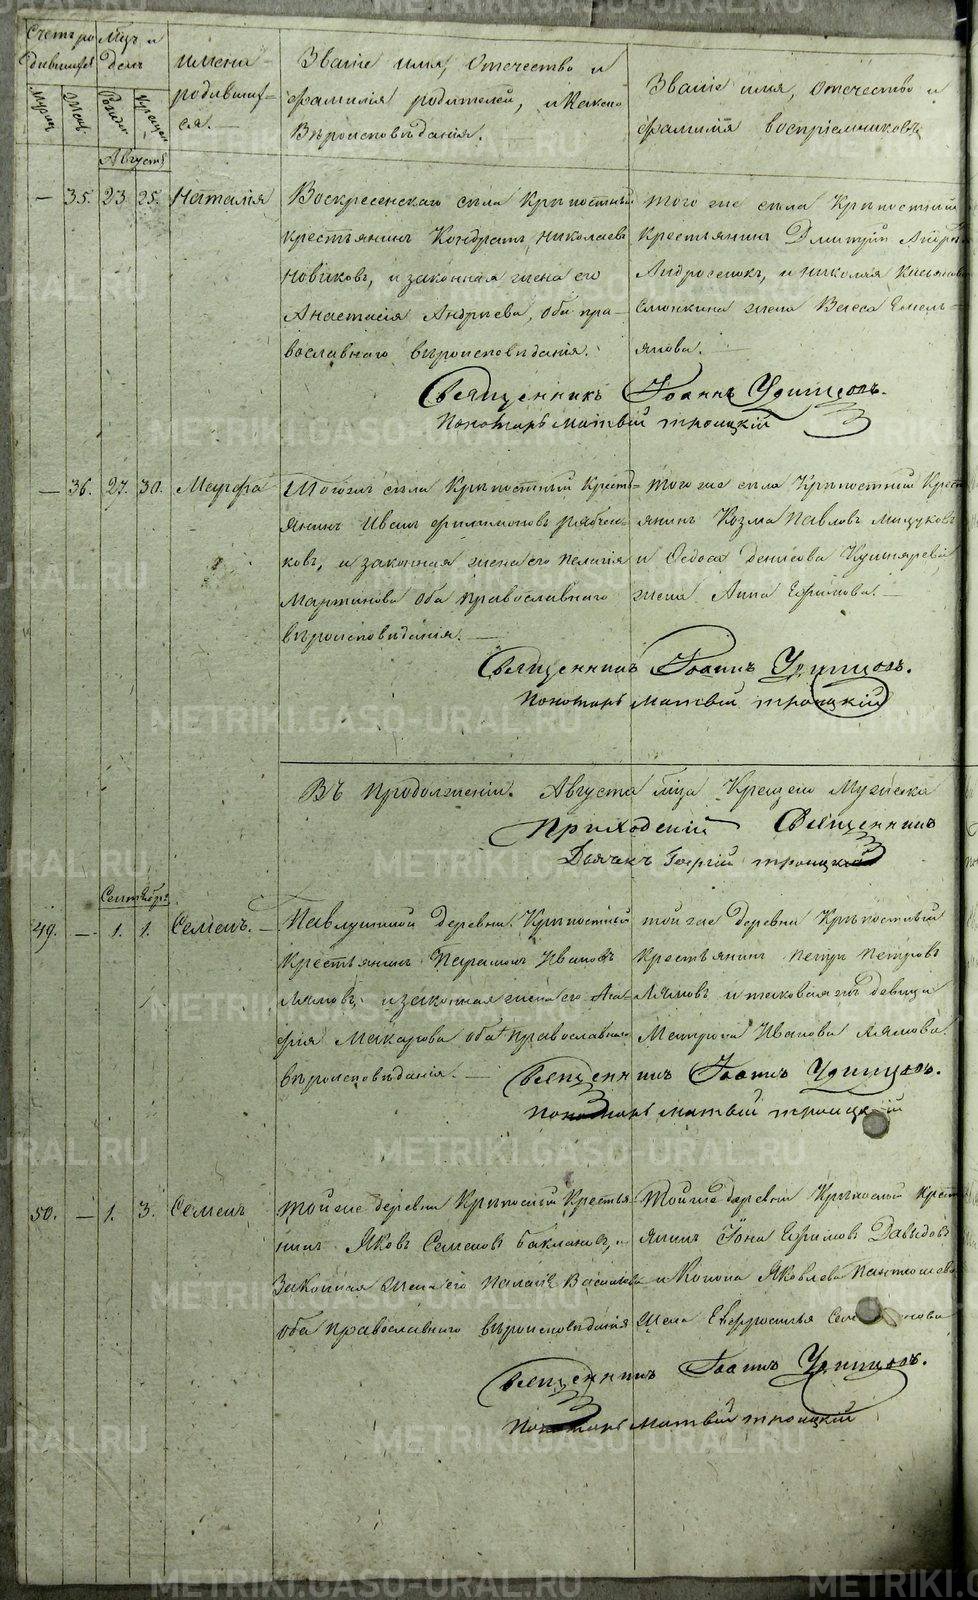 Счетъ родившихся
Муж.
Жен.
Мѣц. и день
Рожд.
Крещен.
имена родившихся.
Званіе имя, отечество и
фамилія родителей, и какого
Вѣроисповѣданія.
Званіе имя, отечество и
фамилія воспріемниковъ
Августъ
— 35. 23 25. Наталія
Воскресенскаго села Крѣпостный
крестьянинъ Кондратъ Николаевъ
Новиковъ, и законная жена его
Анастасія Андреева, оба пра-
вославнаго вѣроисповѣданія.
того же села Крѣпостный
Крестьянинъ Дмитрій
и Николая
жена Васса Емель-
янова.
Священникъ Іоаннъ Удинцовъ.
Пономарь Матвѣй Троицкій
— 36. 27. 30. Марфа
Тогоже села Крѣпостный Кресть-
янинъ Иванъ Филимоновъ Рябчен-
ковъ, и законная жена его Пелагія
Мартинова оба православнаго
вѣроисповѣданія. —
того же села Крѣпостный Крест
янинъ Козма Павловъ
и Ѳедоса Денисова
жена Анна Ефимова. —
Священникъ Іоаннъ Удинцовъ.
Пономарь Матвѣй Троицкій
Въ продолженіи Августа мѣца Крещею Мужеска
Приходскій Священникъ
Дьячекъ Георгій Троицкій
Сентябрь
49. — 1. 1. Семенъ. —
Павлушиной деревни Крѣпостный
Крестьянинъ Парамонъ Ивановъ
Лямовъ, и законная жена его Ага-
фія Макарова оба православнаго
вѣроисповѣданія. —
той же деревни Крѣпостный
Крестьянинъ Петръ Петровъ
Лямовъ и таковаягъ девица
Матрона Иванова Лямова.
Священникъ Іоаннъ Удинцовъ.
Пономарь Матвѣй Троицкій
50. — 1. 3. Семенъ
Тойже деревни Крѣпосный Крестья
нинъ Яковъ Семеновъ Баклановъ, и
Законная жена его Палагѣ Васильева
оба православнаго вѣроисповѣданія
Тойже деревни Крѣпосный Крест
янинъ Іона Ефимовъ Давыдовъ
и Конона Яковлева Пантюшева
жена Евфросинья
Священникъ Іоаннъ Удинцовъ.
Пономарь Матвѣй Троицкій
METRIKI.GASO-URAL.RU